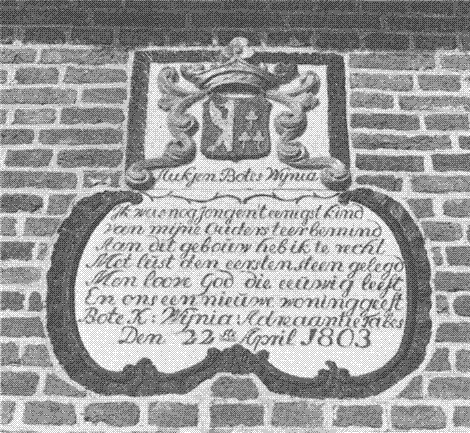 Aukjen Botes Wijnia
Ik was nog jong en't eenigst kind
van mijne Ouders teer bemind
Aan dit gebouw heb ik te recht
Met lust den eersten steen gelegd
Men loove God die eeuwig leeft
En ons een nieuwe woning geeft
Bote K: Wijnia Adraantie Fakes
Den 22ste April 1803